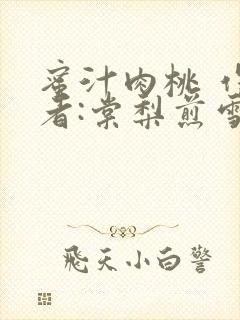 蜜汁肉桃 作
者:棠梨煎雪
飛天小白警